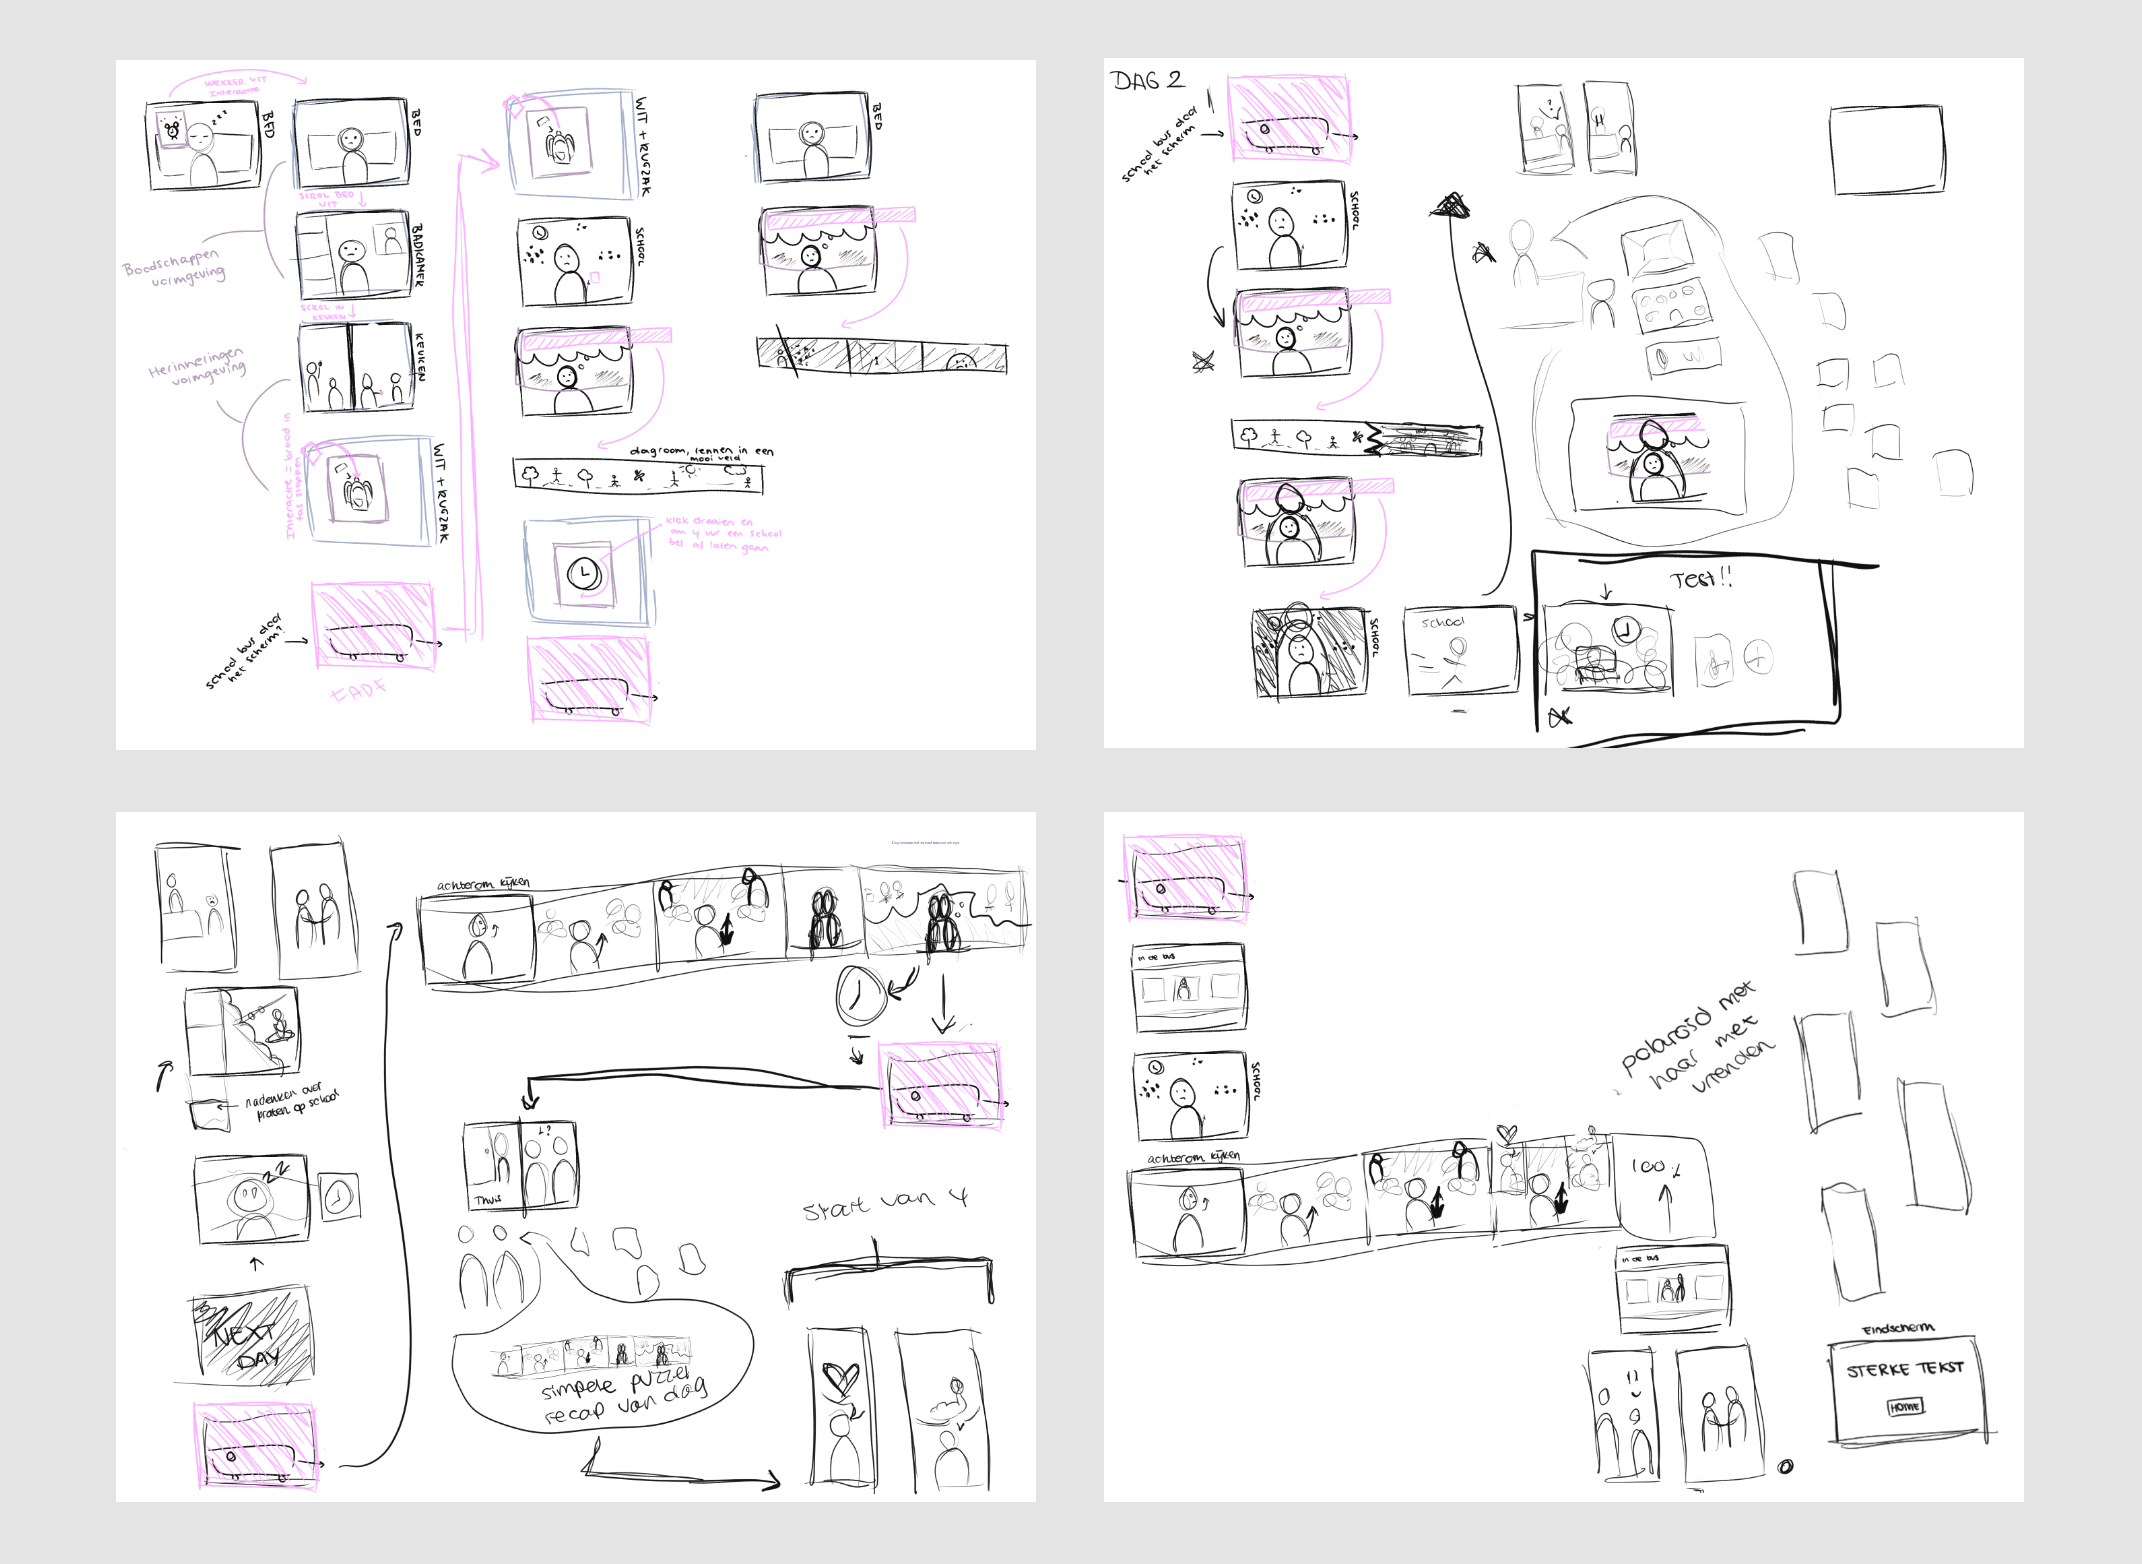 WEKKER UIT
Interactie
BED
zzz
BED
SCROL BED
UIT
BADKAMER
Boodschappen
vormgeving
SCROL IN
KEUKEN
KEUKEN
Herinneringen
vormgeving
Interactie = brood in
tas stoppen
WIT + RUGZAK
school bus door
het scherm?
FADE
WIT + RUGZAK
SCHOOL
dagroom, rennen in een
mooi veld
klok draaien en
om 4 uur een school
bel af laten gaan
BED
DAG 2
school bus door
het scherm
SCHOOL
SCHOOL
school
Test!!
achterom kijken
nadenken over
praten op school
ZZ
NEXT
DAY
Thuis
L?
simpele puzzel
recap van dag
Start van 4
in de bus
SCHOOL
achterom kijken
100%
in de bus
polaroid met
haar met
vrienden
Eindscherm
STERKE TEKST
HOME